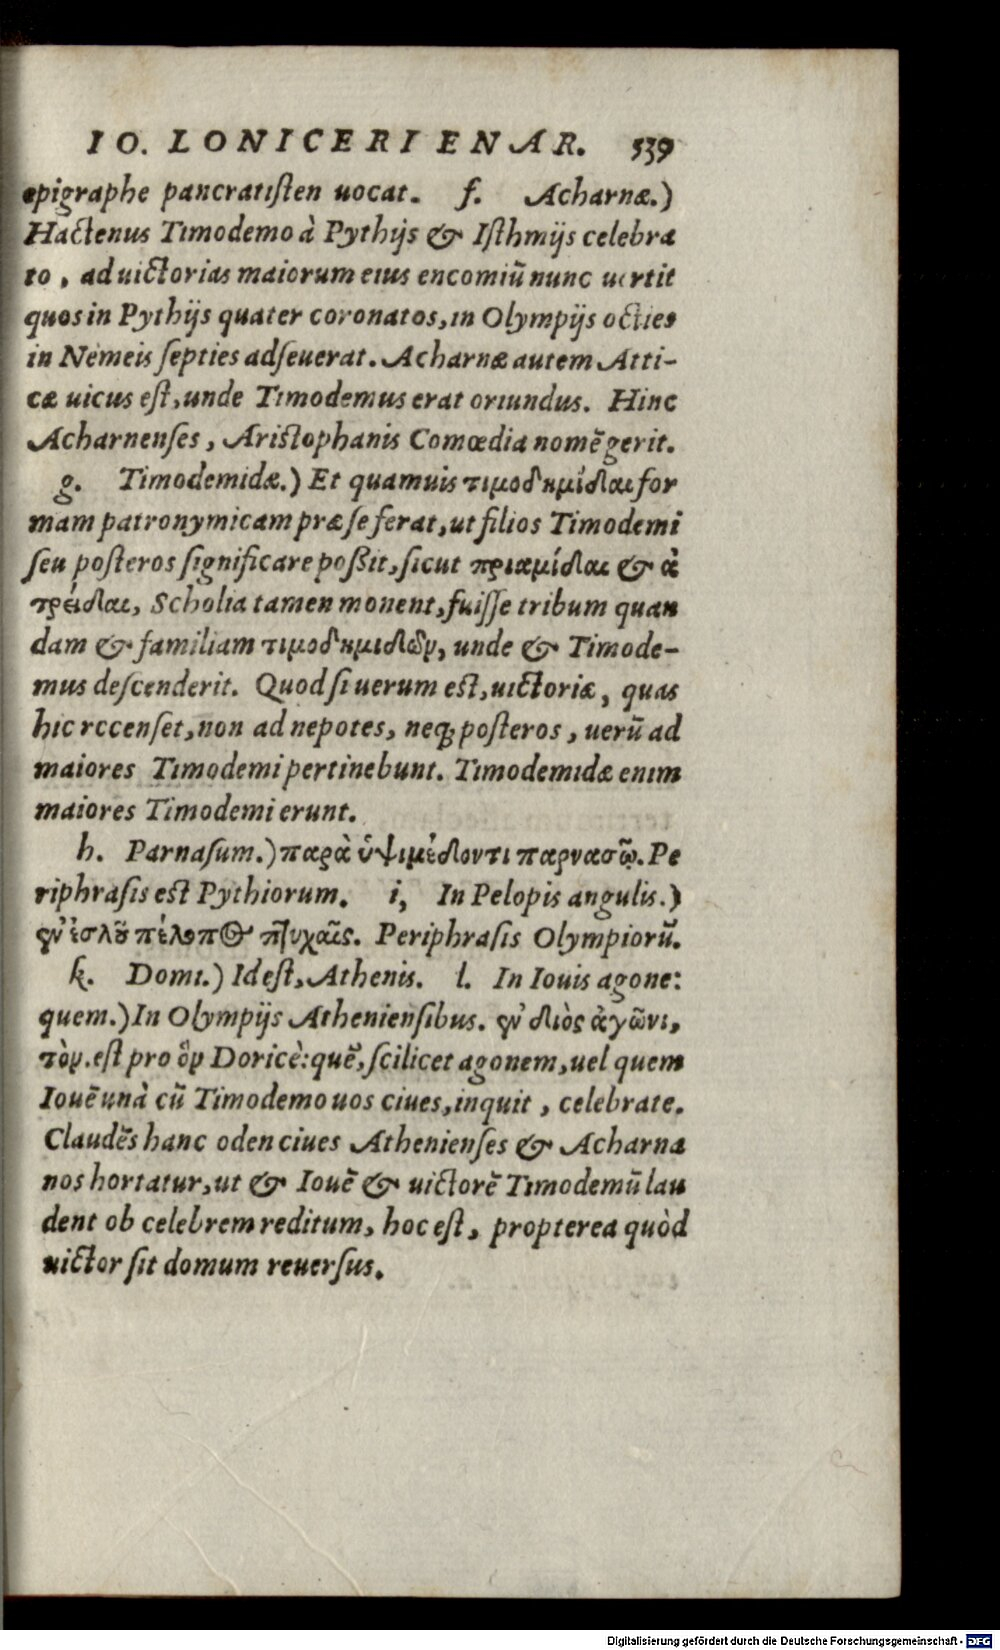 IO. LONICERI ENAR. 539
epigraphe pancratisten uocat. f. Acharnæ.)
Hactenus Timodemo à Pythijs & Isthmijs celebra
to, ad uictorias maiorum eius encomiũ nunc uertit
quos in Pythijs quater coronatos, in Olympijs octies
in Nemeis septies adseuerat. Acharnæ autem Atti-
cæ uicus est, unde Timodemus erat oriundus. Hinc
Acharnenses, Aristophanis Comœdia nomẽ gerit.
g. Timodemidæ.) Et quamuis τιμοδημίδαι for
mam patronymicam præ se ferat, ut filios Timodemi
seu posteros significare possit, sicut πριαμίδαι & ἀ
τρείδαι, Scholia tamen monent, fuisse tribum quan
dam & familiam τιμοδημιδῶν, unde & Timode-
mus descenderit. Quod si uerum est, uictoriæ, quas
hic rccenset, non ad nepotes, neq; posteros, uerũ ad
maiores Timodemi pertinebunt. Timodemidæ enim
maiores Timodemi erunt.
h. Parnasum.) παρὰ ὑψιμέδοντι παρνασῷ. Pe
riphrasis est Pythiorum. i, In Pelopis angulis.)
ἐν ἐσλοῦ πέλοπος πτυχαῖς. Periphrasis Olympiorũ.
k. Domi.) Id est, Athenis. l. In Iouis agone:
quem.) In Olympijs Atheniensibus. ἐν διὸς ἀγῶνι,
τὸν. est pro ὃν Doricè: quẽ, scilicet agonem, uel quem
Iouẽ unà cũ Timodemo uos ciues, inquit, celebrate.
Claudẽs hanc oden ciues Athenienses & Acharna
nos hortatur, ut & Iouẽ & uictorẽ Timodemũ lau
dent ob celebrem reditum, hoc est, propterea quòd
uictor sit domum reuersus.
Digitalisierung gefördert durch die Deutsche Forschungsgemeinschaft - DFG